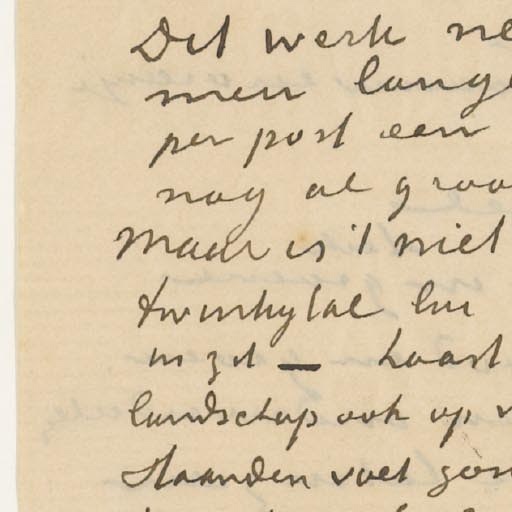 Dit werk ne
men lange
per post een
nog al groo
Maar is 't niet
twintigtal hu
in zit — haast
landschap ook op v
staanden voet gon